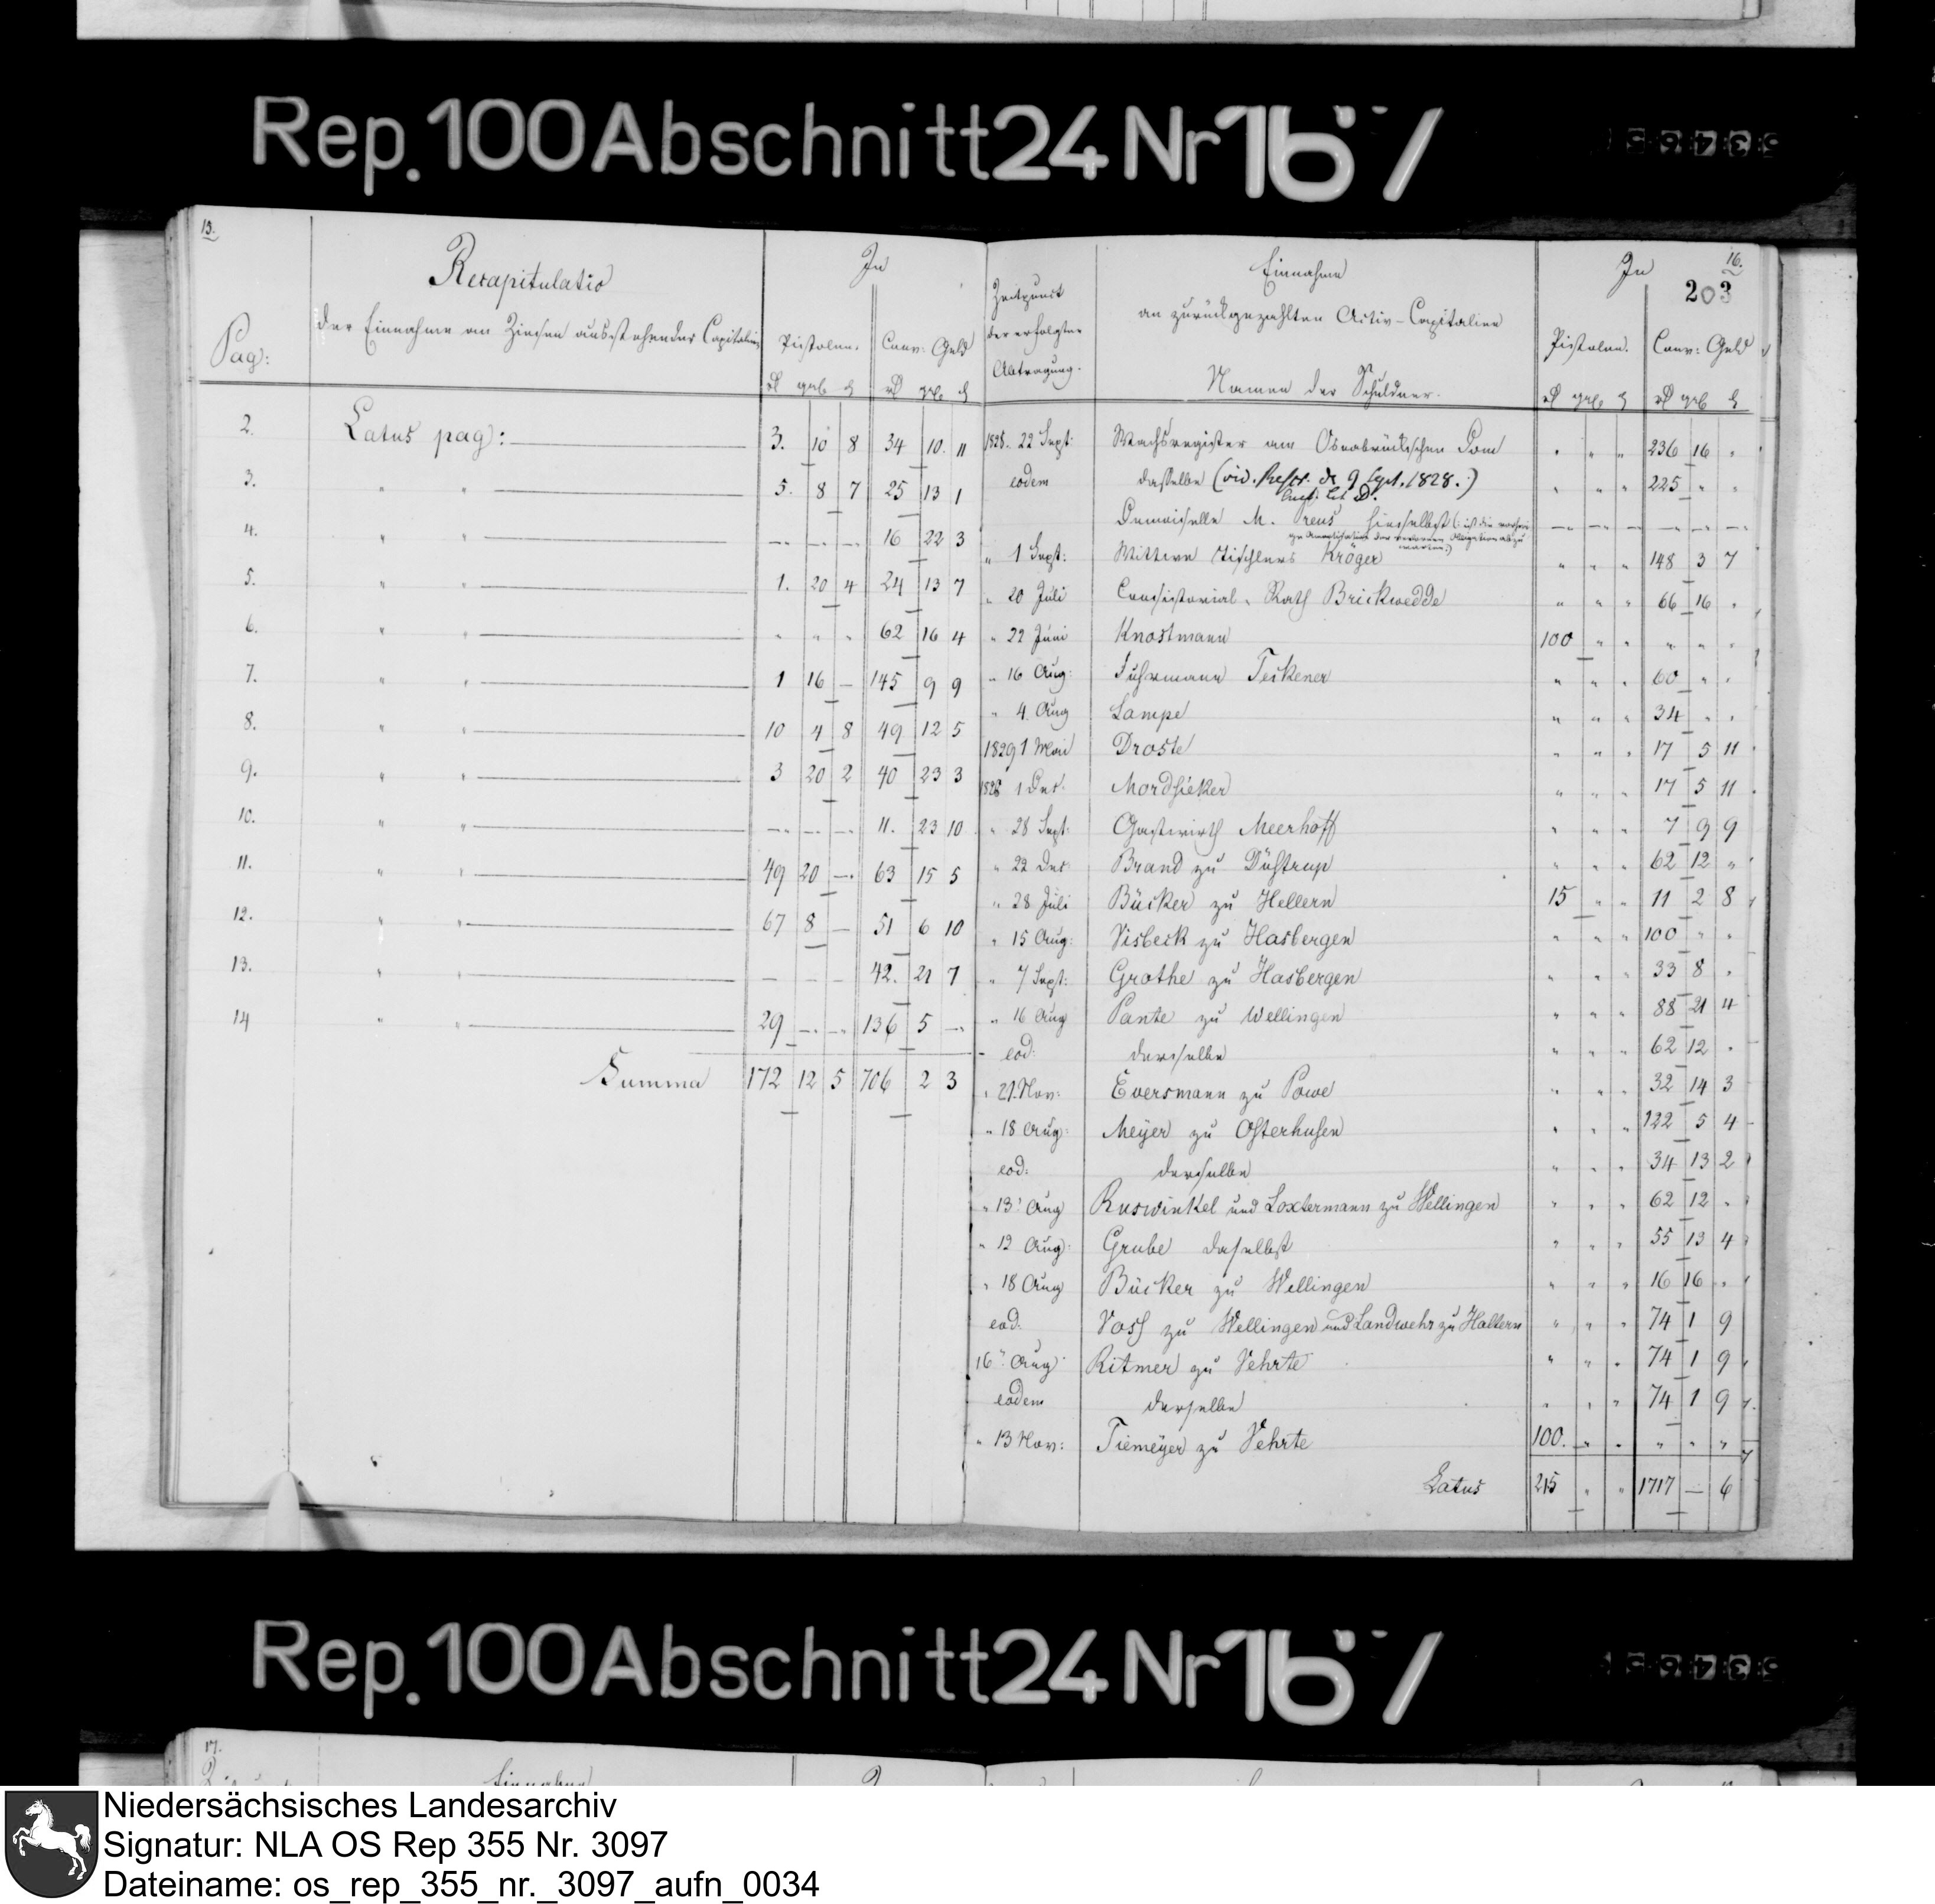 Rep. 100 Abschnitt 24 Nr 167
15.
Recapitulatio
der Einnahme an Zinsen ausstehender Capitalien
Pag:
In
Pistolen. Conv: Geld
rl ggr d rl ggr d
2. Latus pag: 3. 10 8 34 10. 11
3. " " 5. 8 7 25 13 1
4. " " — — — 16 22 3
5. " " 1. 20 4 24 13 7
6. " " " " " 62 16 4
7. " " 1 16 — 145 9 9
8. " " 10 4 8 49 12 5
9. " " 3 20 2 40 23 3
10. " " — — — 11. 23 10
11. " " 49 20 — 63 15 5
12. " " 67 8 — 51 6 10
13. " " — — — 42. 21 7
14 " " 29 — — 136 5 —
Summa 172 12 5 706 2 3
16.
203
Zeitpunct
der erfolgten
Abtragung.
Einnahme
an zurückgezahlten Activ-Capitalien
Namen der Schuldner.
In
Pistolen. Conv: Geld
rl ggr d rl ggr d
1828. 22 Sept: Wachsregister am Osnabrückschen Dom " " " 236 16 "
eodem dasselbe (vid. Rescr. de 9 Sept. 1828.) " " " 225 " "
Lit. D.
Demoiselle M. Preus hieselbst — — — — — —
" 1 Sept: Wittwe Tischlers Kröger " " " 148 3 7
" 20 Juli Consistorial-Rath Brickwedde " " " 66 16 "
" 22 Juni Knostmann 100 " " " " "
" 16 Aug: Fuhrmann Teckener " " " 60 " "
" 4. Aug Lampe " " " 34 " "
1829 1 Mai Droste " " " 17 5 11
1828 1 Dec. Mordsieker " " " 17 5 11
" 28 Sept: Gastwirth Meerhoff " " " 7 9 9
" 22 Dec Brand zu Düstrup " " " 62 12 "
" 28 Juli Bücker zu Hellern 15 " " 11 2 8
" 15 Aug: Visbeck zu Hasbergen " " " 100 " "
" 7 Sept: Grothe zu Hasbergen " " " 33 8 "
" 16 Aug Pante zu Wellingen " " " 88 21 4
eod: derselbe " " " 62 12 "
" 21. Nov: Eversmann zu Powe " " " 32 14 3
" 18 Aug: Meyer zu Osterhusen " " " 122 5 4
eod: derselbe " " " 34 13 2
" 13 Aug Ruwinkel und Loxtermann zu Wellingen " " " 62 12 "
" 12 Aug: Grube daselbst " " " 55 13 4
" 18 Aug Bücker zu Wellingen " " " 16 16 "
eod: Voss zu Wellingen und Landwehr zu Haltern " " " 74 1 9
16 Aug Ritmer zu Vehrte " " " 74 1 9
eodem derselbe " " " 74 1 9
" 13 Nov: Tiemeyer zu Vehrte 100. " " " " "
Latus 215 " " 1717 — 6
Rep. 100 Abschnitt 24 Nr 167
17.
Einnahme
Niedersächsisches Landesarchiv
Signatur: NLA OS Rep 355 Nr. 3097
Dateiname: os_rep_355_nr._3097_aufn_0034